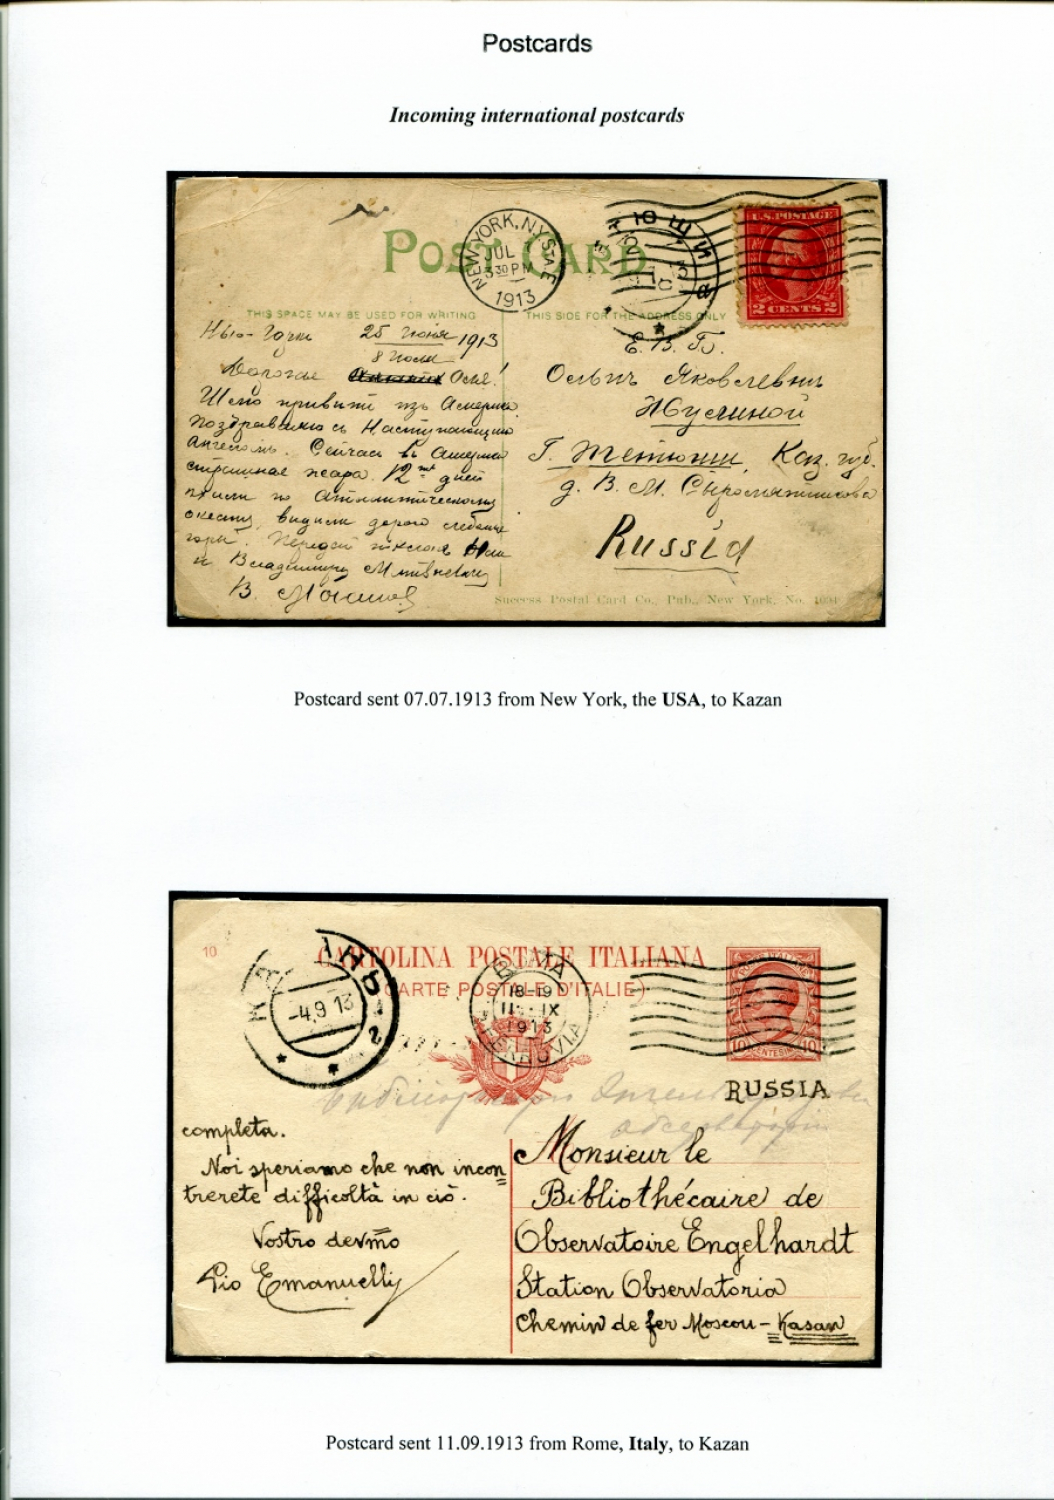 Postcards
Incoming international postcards
POST CARD
NEW YORK, N.Y. STA. E
JUL 7
3 30 PM
1913
U.S. POSTAGE
2 CENTS 2
THIS SPACE MAY BE USED FOR WRITING
THIS SIDE FOR THE ADDRESS ONLY
Нью-Iорк 25 Iюня 1913
8 Iюля
Дорогая Осля!
Шлю приветъ изъ Америки
Поздравляю съ Наступающимъ
Ангеломъ. Сейчасъ въ Америке
страшная жара. 12 дней
плыли по Атлантическому
океану, видели дорогой ледяныя
горы. Передай
и Владимиру Матвеевичу
В.
Е. В. Б.
Яковлевне
Г. Тетюши, Каз. губ.
д. В. М. Сыромятникова
Russia
Success Postal Card Co., Pub., New York, No. 1034
Postcard sent 07.07.1913 from New York, the USA, to Kazan
10
CARTOLINA POSTALE ITALIANA
(CARTE POSTALE D'ITALIE)
КАЗАНЬ 2
-4.9 13
ROMA
18-19
11 · IX
1913
FERROVIA
POSTE ITALIANE
10 CENTESIMI 10
RUSSIA
completa.
Noi speriamo che non incon=
trerete difficoltà in ciò.
Vostro devmo
Pio Emanuelli
Monsieur le
Bibliothécaire de
Observatoire Engelhardt
Station Observatoria
Chemin de fer Moscou - Kasan
Postcard sent 11.09.1913 from Rome, Italy, to Kazan